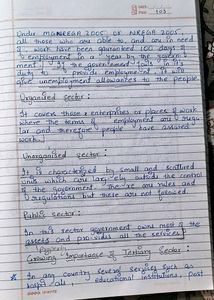 103
Under MGNREGA 2005 or NREGA 2005
all those who are able to, and are in need
of work have been guaranteed 100 days of
employment in a year by the government
If the government fails in its
duty to provide employment, it will
give unemployment allowances to the people.
Organised sector:
It covers those enterprises or places of work
where the terms of employment are regular
and therefore people have assured
work.
Unorganised sector:
It is characterised by small and scattered
units which are largely outside the control
of the government. There are rules and
regulations but these are not followed.
Public sector:
In this sector government owns most of the
assets and provides all the services.
Growing Importance of Tertiary Sector:
In any country several services such as
hospitals, educational institutions, post